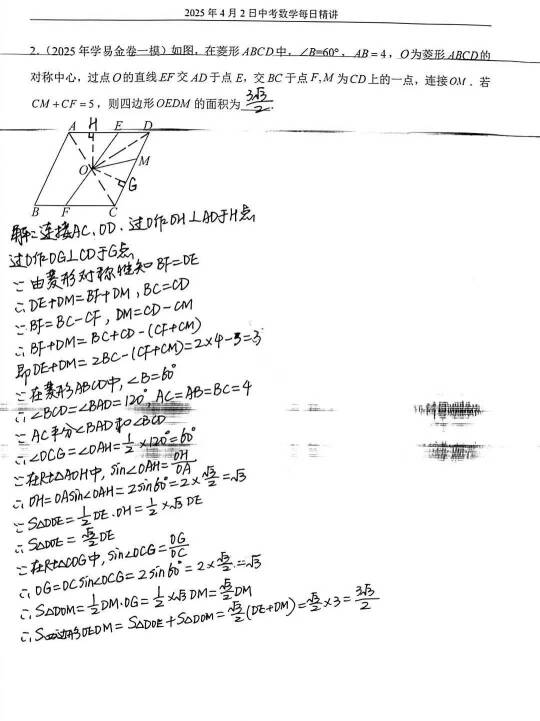 2025年4月2日中考数学每日精讲
2.（2025年学易金卷一模）如图，在菱形ABCD中，∠B=60°，AB=4，O为菱形ABCD的
对称中心，过点O的直线EF交AD于点E，交BC于点F,M为CD上的一点，连接OM．若
CM+CF=5，则四边形OEDM的面积为 3√3/2 ．
A H E D
O M
G
B F C
解：连接AC、OD．过O作OH⊥AD于H点
过O作OG⊥CD于G点
∵由菱形对称性知BF=DE
∴DE+DM=BF+DM，BC=CD
∵BF=BC-CF，DM=CD-CM
∴BF+DM=BC+CD-(CF+CM)
即DE+DM=2BC-(CF+CM)=2×4-5=3
∵在菱形ABCD中，∠B=60°
∴∠BCD=∠BAD=120°，AC=AB=BC=4
∵AC平分∠BAD和∠BCD
∴∠OCG=∠OAH=1/2×120°=60°
∵在Rt△AOH中，sin∠OAH=OH/OA
∴OH=OAsin∠OAH=2sin60°=2×√3/2=√3
∵S△DOE=1/2DE·OH=1/2×√3DE
∴S△DOE=√3/2DE
∵在Rt△COG中，sin∠OCG=OG/OC
∴OG=OCsin∠OCG=2sin60°=2×√3/2=√3
∴S△DOM=1/2DM·OG=1/2×√3DM=√3/2DM
∴S四边形OEDM=S△DOE+S△DOM=√3/2(DE+DM)=√3/2×3=3√3/2